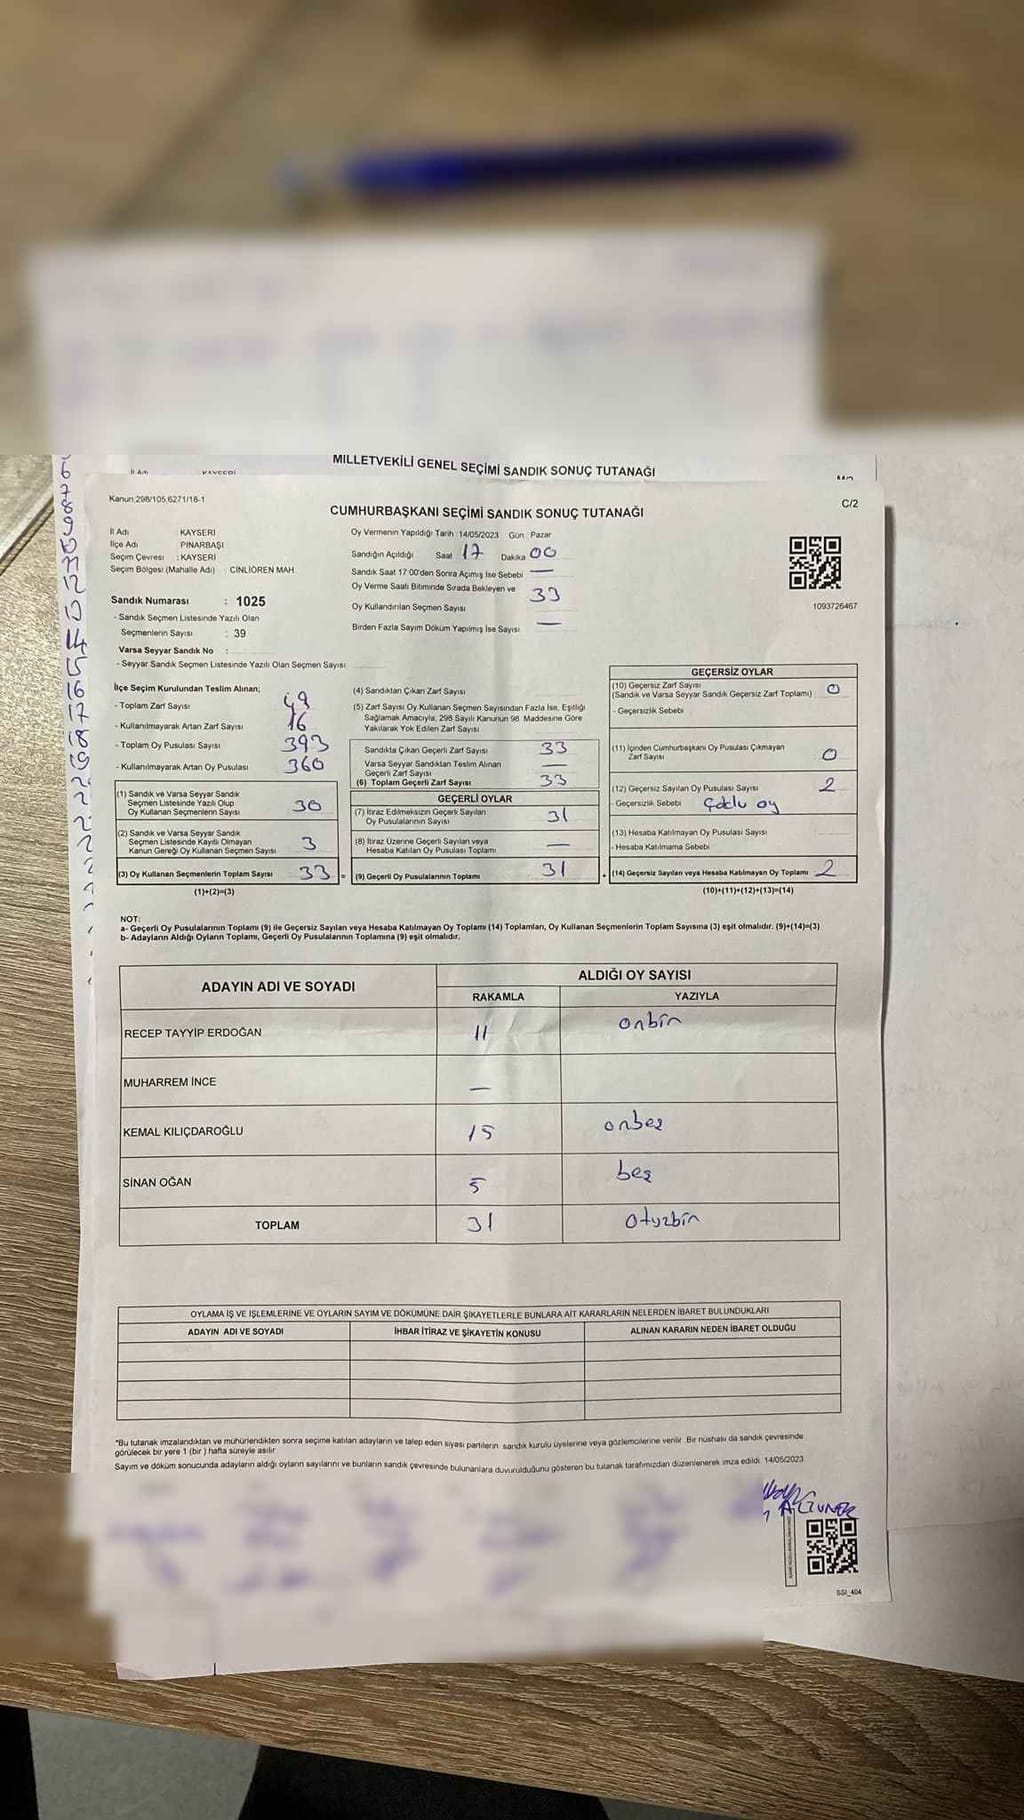 MİLLETVEKİLİ GENEL SEÇİMİ SANDIK SONUÇ TUTANAĞI
İl Adı KAYSERİ
Kanun;298/105,6271/18-1
C/2
CUMHURBAŞKANI SEÇİMİ SANDIK SONUÇ TUTANAĞI
İl Adı KAYSERİ
İlçe Adı PINARBAŞI
Seçim Çevresi : KAYSERİ
Seçim Bölgesi (Mahalle Adı) : CİNLİÖREN MAH
Sandık Numarası : 1025
- Sandık Seçmen Listesinde Yazılı Olan
Seçmenlerin Sayısı : 39
Varsa Seyyar Sandık No :
- Seyyar Sandık Seçmen Listesinde Yazılı Olan Seçmen Sayısı:
Oy Vermenin Yapıldığı Tarih :14/05/2023 Gün : Pazar
Sandığın Açıldığı Saat 17 Dakika 00
Sandık Saat 17:00'den Sonra Açımış İse Sebebi —
Oy Verme Saati Bitiminde Sırada Bekleyen ve
Oy Kullandırılan Seçmen Sayısı 33
Birden Fazla Sayım Döküm Yapılmış İse Sayısı —
1093726467
İlçe Seçim Kurulundan Teslim Alınan;
- Toplam Zarf Sayısı 49
- Kullanılmayarak Artan Zarf Sayısı 16
- Toplam Oy Pusulası Sayısı 393
- Kullanılmayarak Artan Oy Pusulası 360
(1) Sandık ve Varsa Seyyar Sandık
Seçmen Listesinde Yazılı Olup
Oy Kullanan Seçmenlerin Sayısı 30
(2) Sandık ve Varsa Seyyar Sandık
Seçmen Listesinde Kayıtlı Olmayan
Kanun Gereği Oy Kullanan Seçmen Sayısı 3
(3) Oy Kullanan Seçmenlerin Toplam Sayısı 33 =
(1)+(2)=(3)
(4) Sandıktan Çıkan Zarf Sayısı
(5) Zarf Sayısı Oy Kullanan Seçmen Sayısından Fazla İse, Eşitliği
Sağlamak Amacıyla, 298 Sayılı Kanunun 98. Maddesine Göre
Yakılarak Yok Edilen Zarf Sayısı
Sandıkta Çıkan Geçerli Zarf Sayısı 33
Varsa Seyyar Sandıktan Teslim Alınan
Geçerli Zarf Sayısı —
(6) Toplam Geçerli Zarf Sayısı 33
GEÇERLİ OYLAR
(7) İtiraz Edilmeksizin Geçerli Sayılan
Oy Pusulalarının Sayısı 31
(8) İtiraz Üzerine Geçerli Sayılan veya
Hesaba Katılan Oy Pusulası Toplamı —
(9) Geçerli Oy Pusulalarının Toplamı 31 +
GEÇERSİZ OYLAR
(10) Geçersiz Zarf Sayısı
(Sandık ve Varsa Seyyar Sandık Geçersiz Zarf Toplamı) 0
- Geçersizlik Sebebi
(11) İçinden Cumhurbaşkanı Oy Pusulası Çıkmayan
Zarf Sayısı 0
(12) Geçersiz Sayılan Oy Pusulası Sayısı 2
- Geçersizlik Sebebi Çoklu oy
(13) Hesaba Katılmayan Oy Pusulası Sayısı
- Hesaba Katılmama Sebebi
(14) Geçersiz Sayılan veya Hesaba Katılmayan Oy Toplamı 2
(10)+(11)+(12)+(13)=(14)
NOT:
a- Geçerli Oy Pusulalarının Toplamı (9) ile Geçersiz Sayılan veya Hesaba Katılmayan Oy Toplamı (14) Toplamları, Oy Kullanan Seçmenlerin Toplam Sayısına (3) eşit olmalıdır. (9)+(14)=(3)
b- Adayların Aldığı Oyların Toplamı, Geçerli Oy Pusulalarının Toplamına (9) eşit olmalıdır.
ADAYIN ADI VE SOYADI
ALDIĞI OY SAYISI
RAKAMLA YAZIYLA
RECEP TAYYİP ERDOĞAN 11 onbir
MUHARREM İNCE —
KEMAL KILIÇDAROĞLU 15 onbeş
SİNAN OĞAN 5 beş
TOPLAM 31 otuzbir
OYLAMA İŞ VE İŞLEMLERİNE VE OYLARIN SAYIM VE DÖKÜMÜNE DAİR ŞİKAYETLERLE BUNLARA AİT KARARLARIN NELERDEN İBARET BULUNDUKLARI
ADAYIN ADI VE SOYADI İHBAR İTİRAZ VE ŞİKAYETİN KONUSU ALINAN KARARIN NEDEN İBARET OLDUĞU
*Bu tutanak imzalandıktan ve mühürlendikten sonra seçime katılan adayların ve talep eden siyasi partilerin sandık kurulu üyelerine veya gözlemcilerine verilir. Bir nüshası da sandık çevresinde
görülecek bir yere 1 (bir ) hafta süreyle asılır.
Sayım ve döküm sonucunda adayların aldığı oyların sayılarını ve bunların sandık çevresinde bulunanlara duyurulduğunu gösteren bu tutanak tarafımızdan düzenlenerek imza edildi. 14/05/2023
SSI_404
6
7
8
9
10
11
12
13
14
15
16
17
18
19